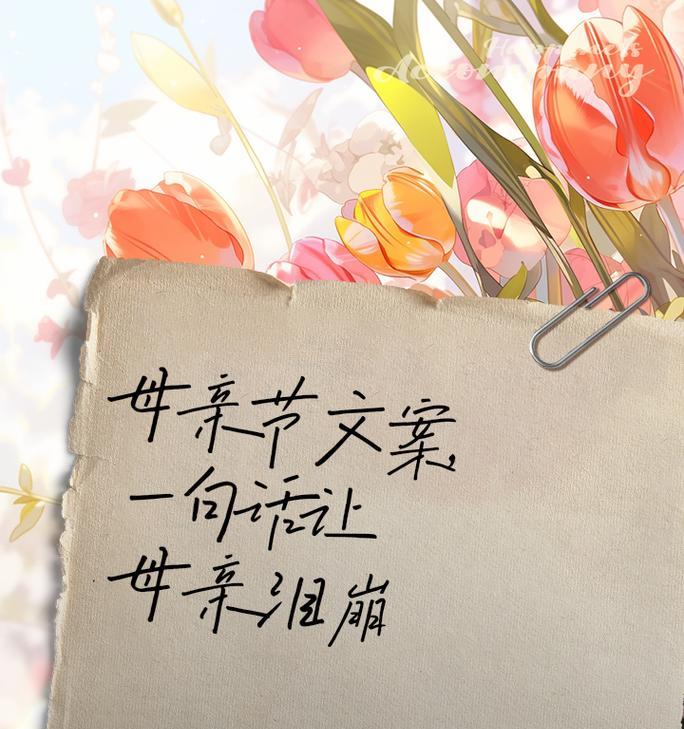 Happiness
Accompany
母亲节文案，
一句话让
母亲泪崩